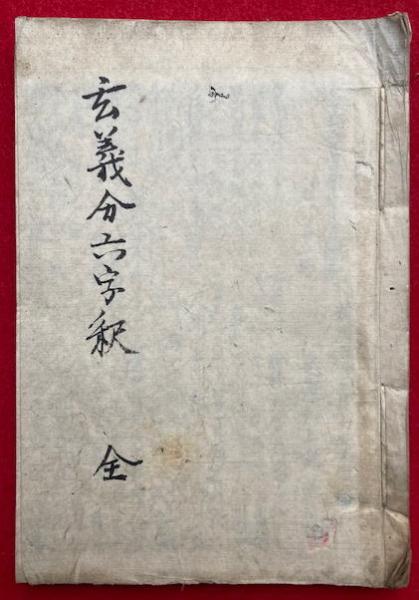 玄義分六字釈 全